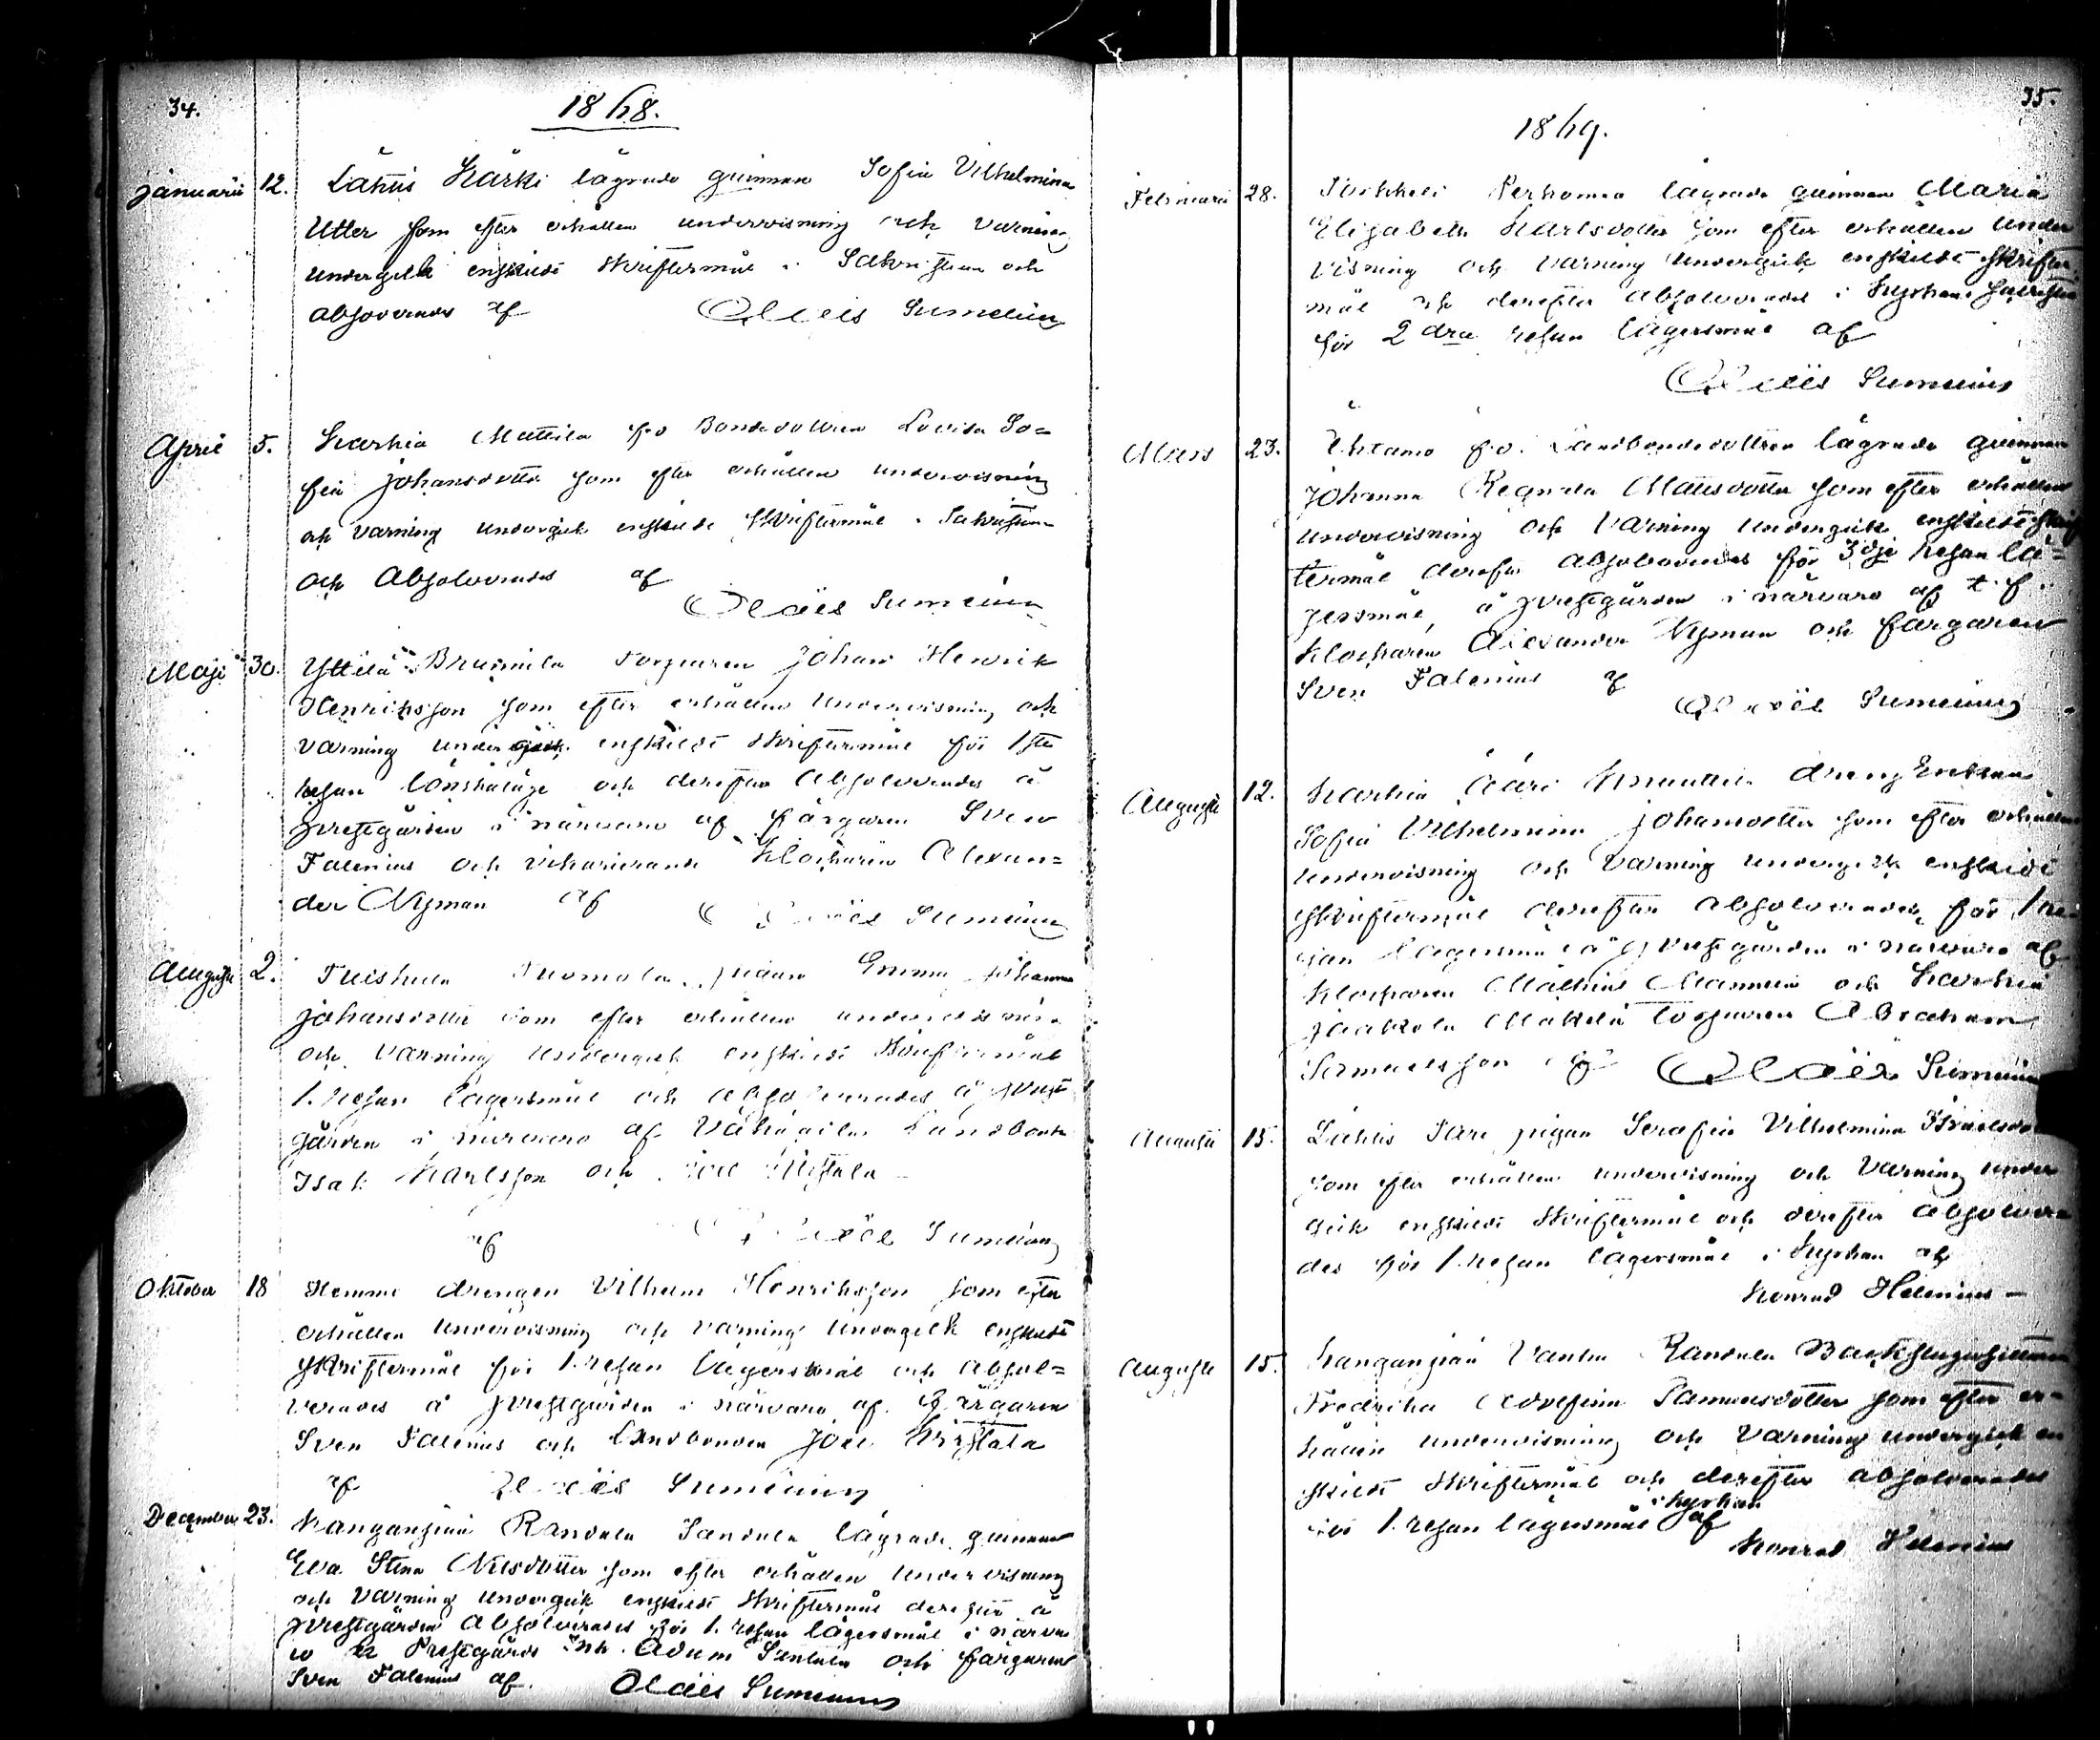 34.
1868.
Januarii 12. Lähtis Kärki lägrade quinnan Sofia Vilhelmina
Utter som efter erhållen undervisning och varning
undergick enskildt skriftermål i Sakristian och
absoverades af Olaës Sumelius
April 5. Karhia Mattila f.d Bondedottren Lovisa So=
fia Johansdotter som efter erhållen undervisning
och varning undergick enskildt skriftermål i Sakristian
och absolverades af
Olaës Sumelius
Maji 30. Yttilä Brusiila Torparen Johan Henrik
Henriksson som efter erhållen undervisning och
varning undergick enskildt skriftermål för 1sta
resan lönskaläge och derefter absolverades å
prestgården i närvaro af färgaren Sven
Falenius och vikarierande Klockaren Alexan=
der Nyman af Olaës Sumelius
Augusti 2. Tuomola pigan Emma Johanna
Johansdotter som efter erhållen undervisning
och varning undergick enskildt skriftermål
1. resan lägersmål och absolverades å prest
gården i närvaro af Landbonde
Isak Karlsson och Joel
af Olaës Sumelius
Oktober 18 Hemmi drengen Vilhelm Henriksson som efter
erhållen undervisning och varning undergick enskildt
skriftermål för 1. resan lägersmål och absol=
verades å prestgården i närvaro af Färgaren
Sven Falenius och landbonden Joel Kristala
af Olaës Sumelius
December 23. Kanganpää Randula Sandula lägrade quinnan
Eva Stina Nilsdotter som efter erhållen undervisning
och varning undergick enskildt skriftermål derefter å
prestgården absolverades för 1. resan lägersmål i närva
ro Prestgårds Adam och färgaren
Sven Falenius af Olaës Sumelius
35.
1869.
Februari 28. lägrade quinnan Maria
Elisabeth Karlsdotter som efter erhållen under
visning och varning undergick enskildt skrifter
mål och derefter absolverades i Kyrkans sacristia
för 2dra resan lägersmål af
Olaës Sumelius
Mars 23. Uhtamo f.d. Landbondedottren lägrade quinnan
Johanna Regnela Mattsdotter som efter erhållen
undervisning och varning undergick enskildt skrif
termål derefter absolverades för 3dje resan lä=
gersmål, å prestgården i närvaro af t.f.
Klockaren Alexander Nyman och färgaren
Sven Falenius af
Olaës Sumelius
Augusti 12. Karhia drengenkan
Sofia Vilhelmina Johansdotter som efter erhållen
undervisning och varning undergick enskildt
skriftermål derefter absolverades för 1 re
san lägersmål å prestgården i närvaro af
Klockaren Mathias Mannelin och Karhia
Jaakola Mäkelä torparen Abraham
Samuelsson af Olaës Sumelius
Augusti 15. Lähtis pigan Serafia Vilhelmina
som efter erhållen undervisning och varning under
gick enskildt skriftermål och derefter absolvera
des för 1. resan lägersmål i Kyrkan af
Konrad Helenius
Augusti 15. Kanganpää Vanha Randula Backstuguqvinnan
Fredrika Adolfina Samuelsdotter som efter er=
hållen undervisning och varning undergick en
skildt skriftermål och derefter absolverades
för 1. resan lägersmål i kyrkan af
Konrad Helenius